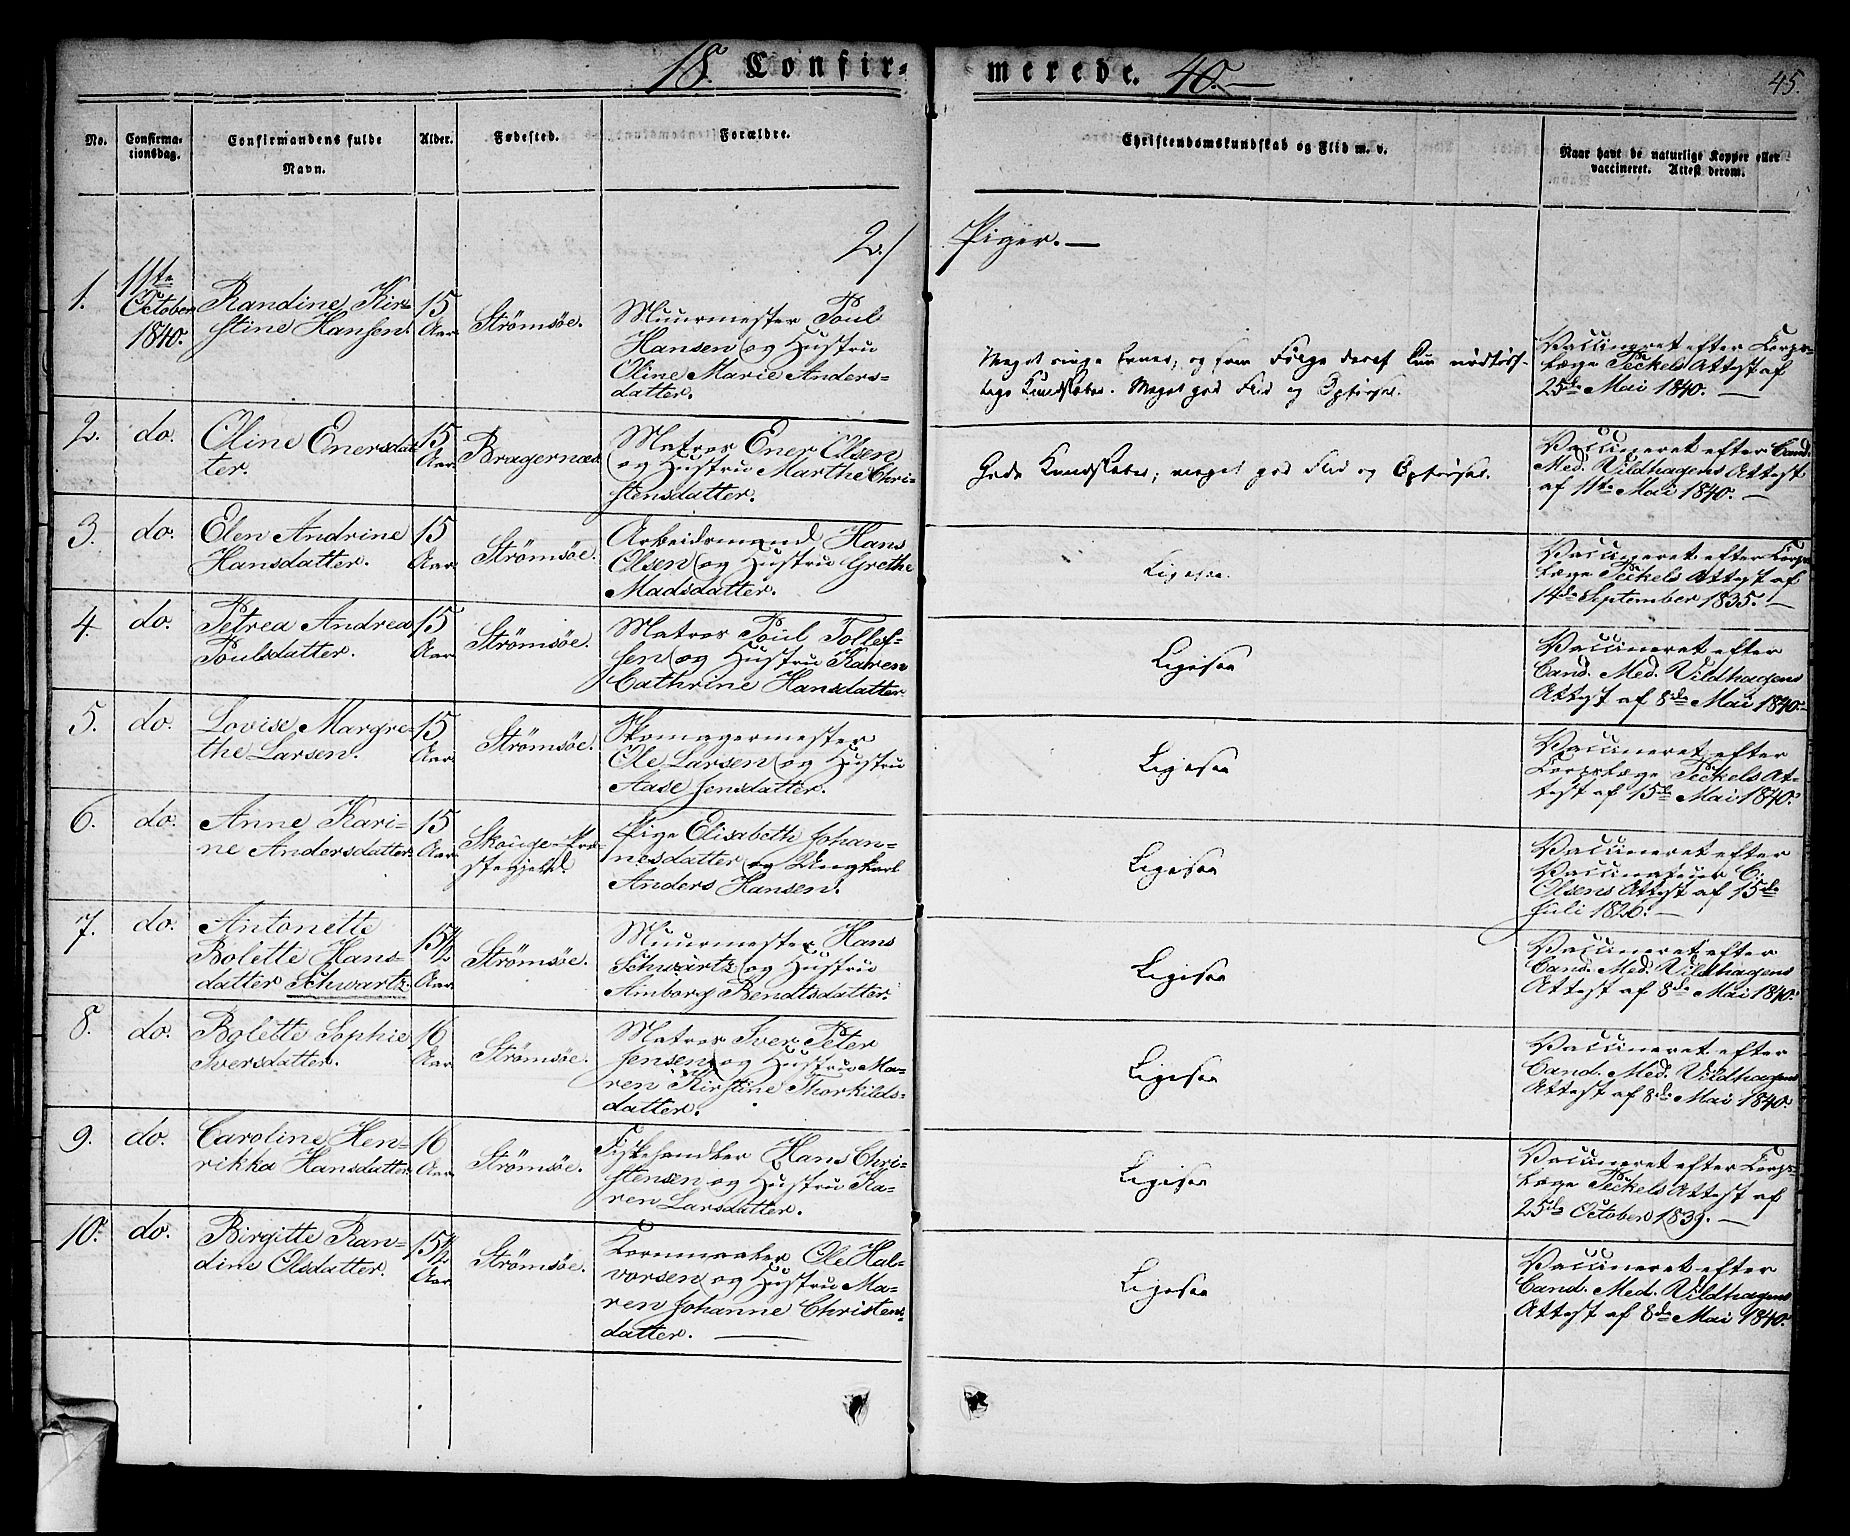 18 Confir- merede. 40. —
45.
No.
Confirma-
tionsdag.
Confirmandens fulde
Navn.
Alder.
Fødested.
Forældre.
Christendomskundskab og Flid m. v.
Naar havt de naturlige Kopper eller
vaccineret. Attest derom.
2./ Piger. —
1.
11te
October
1840.
Randine Kir-
stine Hansen.
15
Aar.
Strømsøe.
Muurmester Poul
Hansen og Hustru
Oline Marie Anders-
datter.
Meget ringe Evner, og som Følge deraf kun nødtørf-
tige Kundskaber. Meget god Flid og Opførsel.
Vaccineret efter Corps-
læge Peckels Attest af
25de Mai 1840. —
2.
do.
Oline Enersdat-
ter.
15
Aar.
Bragernæs
Matros Ener Olsen
og Hustru Marthe Chri-
stensdatter.
Gode Kundskaber, meget god Flid og Opførsel.
Vaccineret efter Cand.
Med. Vildhagens Attest
af 11te Mai 1840. —
3.
do.
Elen Andrine
Hansdatter.
15
Aar.
Strømsøe.
Arbeidsmand Hans
Olsen og Hustru Grethe
Madsdatter.
Ligesaa.
Vaccineret efter Corps-
læge Peckels Attest af
14de September 1835. —
4.
do.
Petrea Andrea
Poulsdatter.
15
Aar.
Strømsøe.
Matros Poul Tollef-
sen og Hustru Karen
Cathrine Hansdatter
Ligesaa
Vaccineret efter
Cand. Med. Vildhagens
Attest af 8de Mai 1840. —
5.
do.
Lovise Margre-
the Larsen.
15
Aar.
Strømsøe.
Skomagermester
Ole Larsen og Hustru
Aase Jensdatter.
Ligesaa
Vaccineret efter
Corpslæge Peckels At-
test af 15de Mai 1840.
6.
do.
Anne Kari-
ne Andersdatter.
15
Aar.
Skouge Præ-
stegjeld.
Pige Elisabeth Johan-
nesdatter og Ungkarl
Anders Hansen.
Ligesaa
Vaccineret efter
Vaccinateur C.
Olsens Attest af 15de
Juli 1826. —
7.
do.
Antonette
Bolette Hans-
datter Schwartz.
15 1/2
Aar.
Strømsøe.
Muurmester Hans
Schwartz og Hustru
Ainborg Bendtsdatter.
Ligesaa
Vaccineret efter
Cand. Med. Vildhagens
Attest af 8de Mai 1840.
8.
do.
Bolette Sophie
Iversdatter.
16
Aar.
Strømsøe.
Matros Iver Peter
Jensen og Hustru Ma-
ren Kirstine Thorkilds-
datter.
Ligesaa
Vaccineret efter
Cand. Med. Vildhagens
Attest af 8de Mai 1840.
9.
do.
Caroline Hen-
rikka Hansdatter
16
Aar.
Strømsøe.
Fiskehandler Hans Chri-
stensen og Hustru Ka-
ren Larsdatter.
Ligesaa
Vaccineret efter Corps-
læge Peckels Attest af
25de October 1839. —
10.
do.
Birgitte Ran-
dine Olsdatter.
15 1/2
Aar.
Strømsøe.
Kornmaaler Ole Hal-
vorsen og Hustru Ma-
ren Johanne Christens-
datter. —
Ligesaa
Vaccineret efter
Cand. Med. Vildhagens
Attest af 8de Mai 1840.